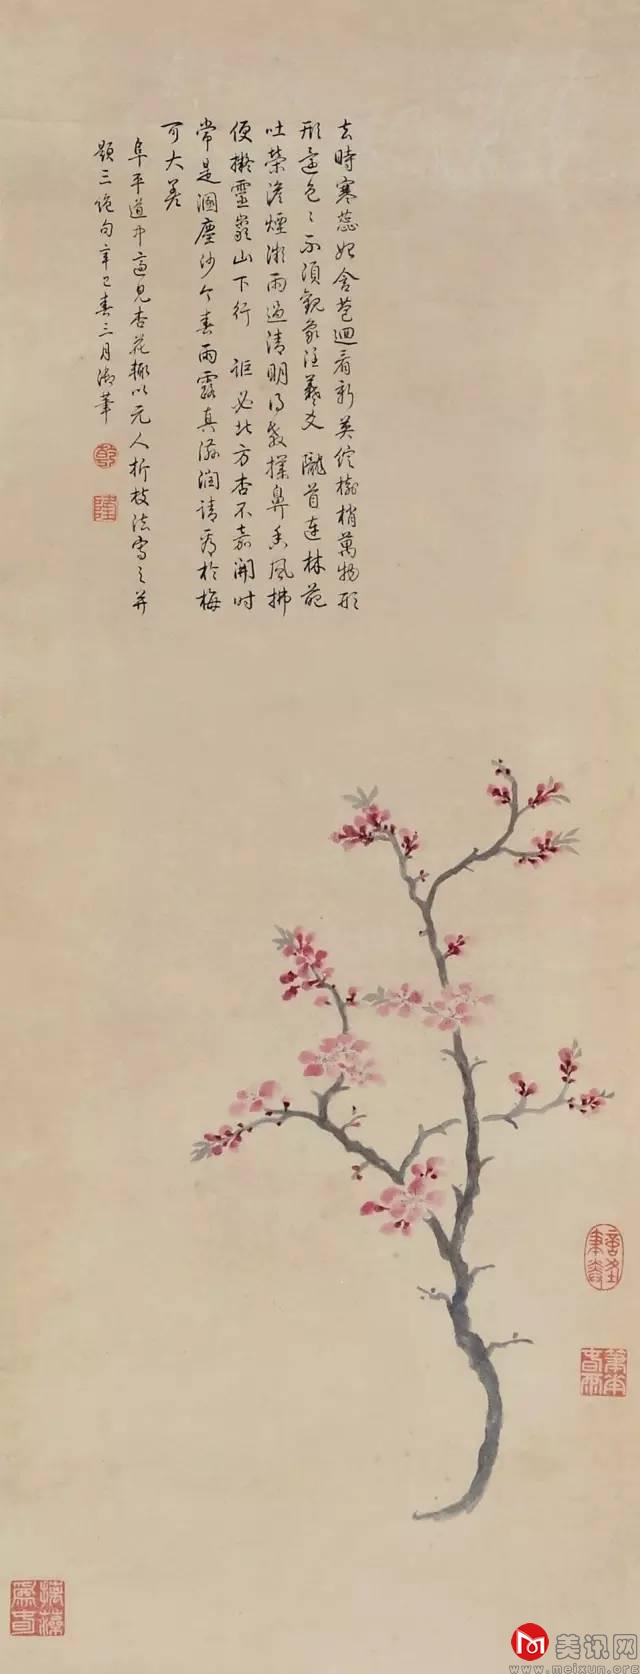 去時寒蕊始含苞迴看新英綻樹梢萬物形
形還色〻不須觀象注羲爻 隴首連林葩
吐榮澹煙微雨過清明為教撲鼻香風拂
便擬靈巖山下行 詎必北方杏不嘉開時
常是涸塵沙今春雨露真滋潤請看於梅
可大差
阜平道中適見杏花輒以元人折枝法寫之并
題三絕句辛巳春三月御筆
乾
隆
摛藻
為春
美讯网
www.meixun.org